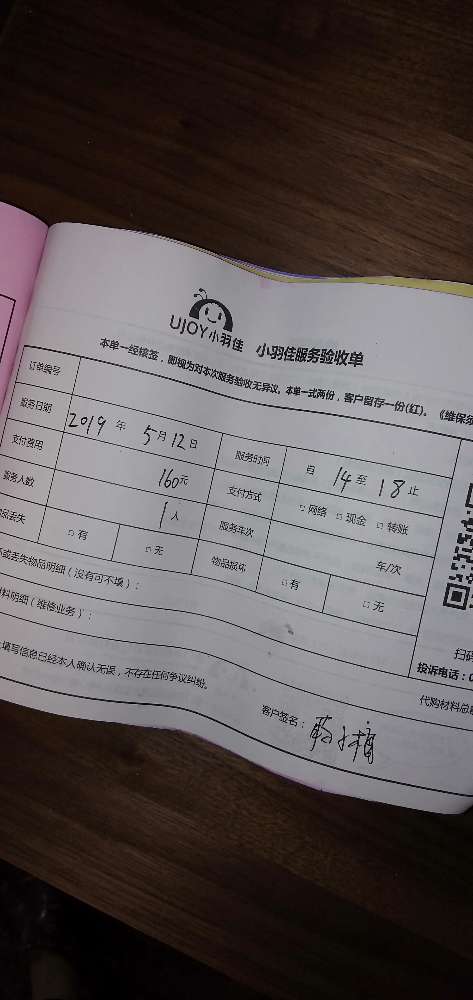 UJOY小羽佳 小羽佳服务验收单
本单一经核签，即视为对本次服务验收无异议。本单一式两份，客户留存一份(红)。《维保须
订单编号
服务日期 2019 年 5月12日 服务时间 自 14 至 18 止
支付费用 160元 支付方式 □网络 □现金 □转账
服务人数 1人 服务车次 车/次
品丢失 □有 □无 物品损坏 □有 □无
或丢失物品明细（没有可不填）：
材料明细（维修业务）：
扫码
投诉电话：0
代购材料总
填写信息已经本人确认无误，不存在任何争议纠纷。
客户签名：